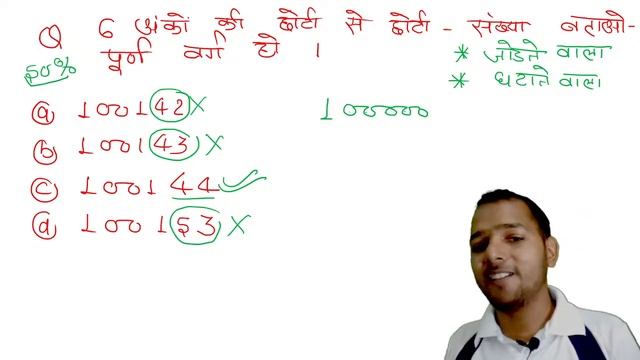 Q 6 अंकों की छोटी से छोटी - संख्या बताओ-
पूर्ण वर्ग हो ।
50%
* जोडने वाला
* घटाने वाला
ⓐ 100142 X
ⓑ 100143 X
ⓒ 100144 ✓
ⓓ 100153 X
100000